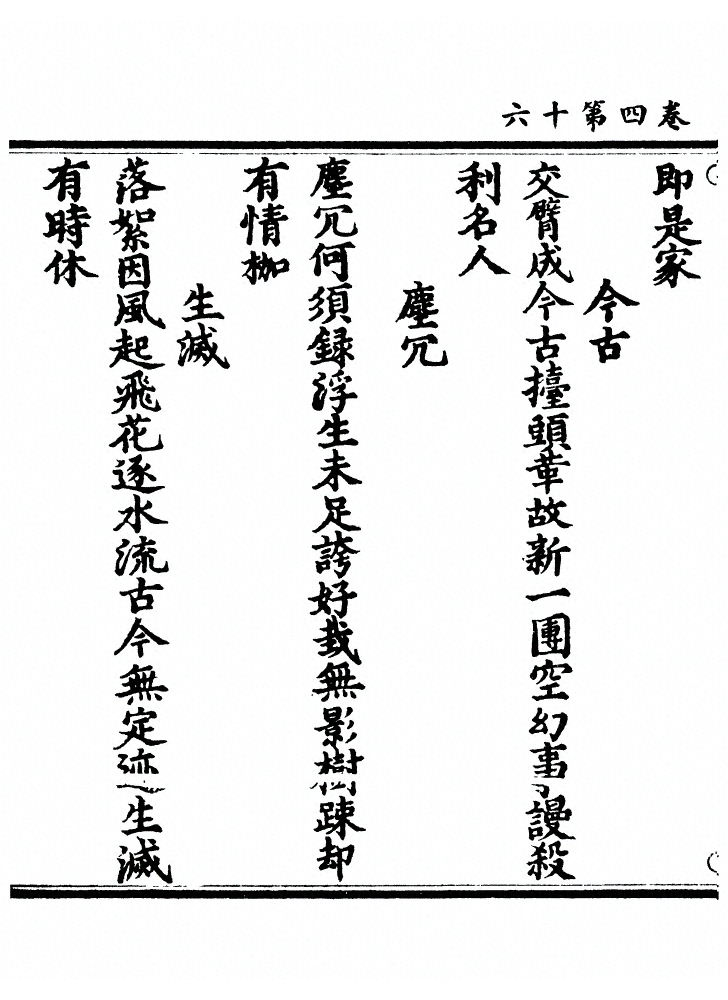 卷四第十六
即是家
今古
交臂成今古擡頭革故新一團空幻事謾殺
利名人
塵冗
塵冗何須録浮生未足誇好栽無影樹踈却
有情枷
生滅
落絮因風起飛花逐水流古今無定迹生滅
有時休